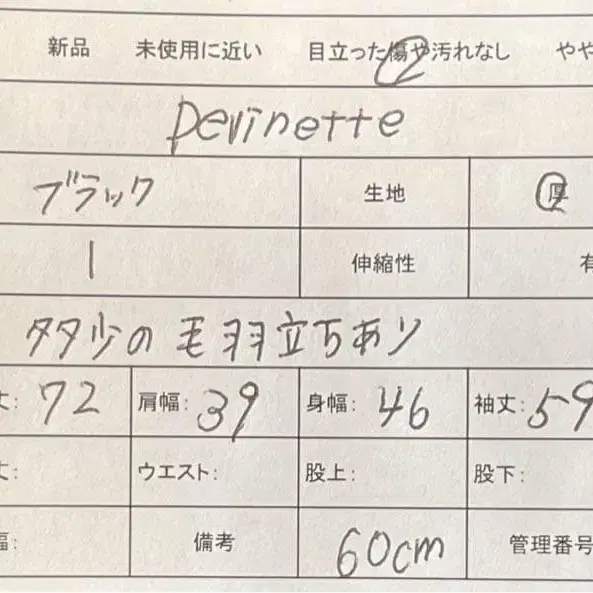 新品 未使用に近い 目立った傷や汚れなし やや
Devinette
ブラック 生地 厚
1 伸縮性 有
多少の毛羽立ちあり
丈: 72 肩幅: 39 身幅: 46 袖丈: 59
丈: ウエスト: 股上: 股下:
幅: 備考 60cm 管理番号